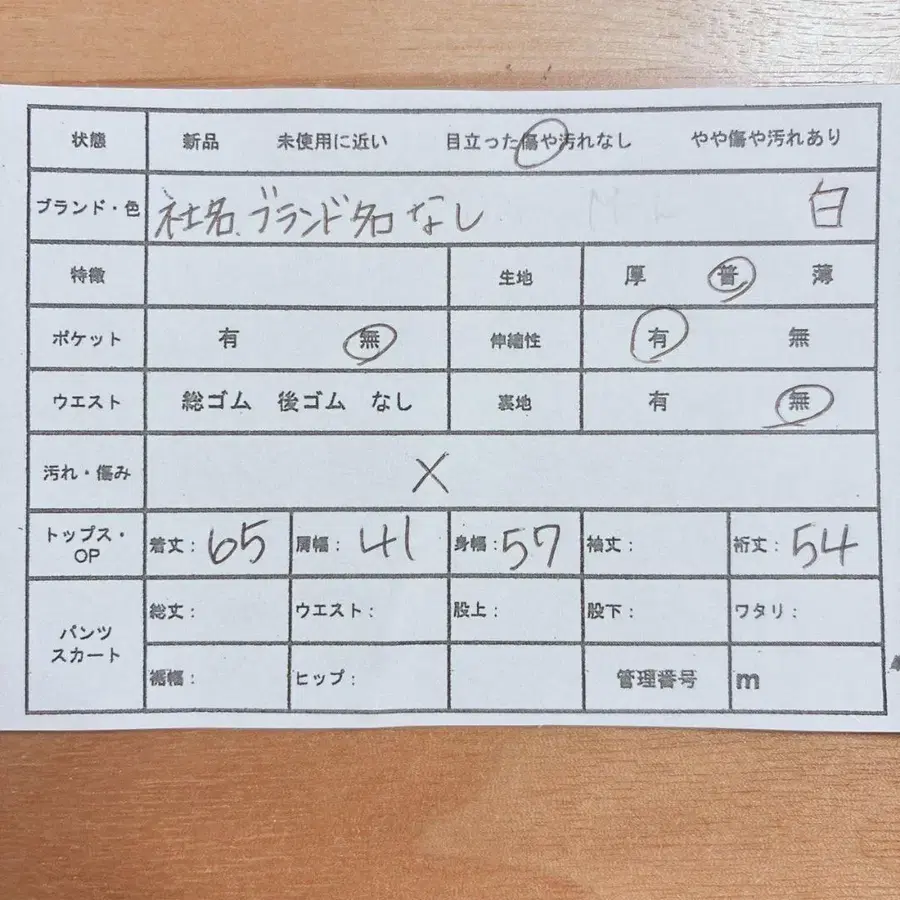 状態 新品 未使用に近い 目立った傷や汚れなし やや傷や汚れあり
ブランド・色 社名、ブランド名なし 白
特徴 生地 厚 普 薄
ポケット 有 無 伸縮性 有 無
ウエスト 総ゴム 後ゴム なし 裏地 有 無
汚れ・傷み ×
トップス・OP 着丈: 65 肩幅: 41 身幅: 57 袖丈: 裄丈: 54
パンツ スカート 総丈: ウエスト: 股上: 股下: ワタリ:
裾幅: ヒップ: 管理番号 m